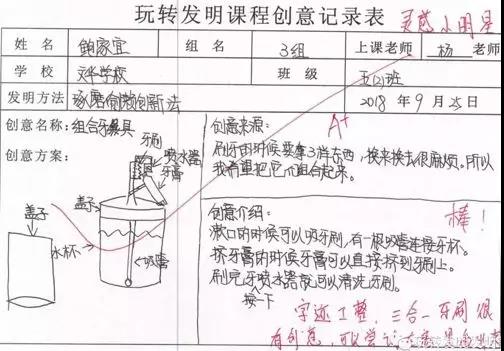 玩转发明课程创意记录表
灵感小明星
姓名 鲍家宜 组名 3组 上课老师 杨 老师
学校 文华学校 班级 五(2)班
发明方法 琢磨 创新法 2018年9月25日
A+
创意名称:组合牙具
创意方案:
牙刷
喷水器
牙膏
盖子
盖子
水杯
吸管
创意来源:
刷牙的时候要拿3样东西,换来换去很麻烦。所以
我希望把它们组合起来。
棒!
创意介绍:
漱口的时候可以吸牙刷,有一根吸管连接牙杯。
挤牙膏的时候牙膏可以直接挤到牙刷上。
刷完牙喷水器就可以清洗牙刷。
按一下
字迹工整,三合一牙刷很
有创意,可以尝试